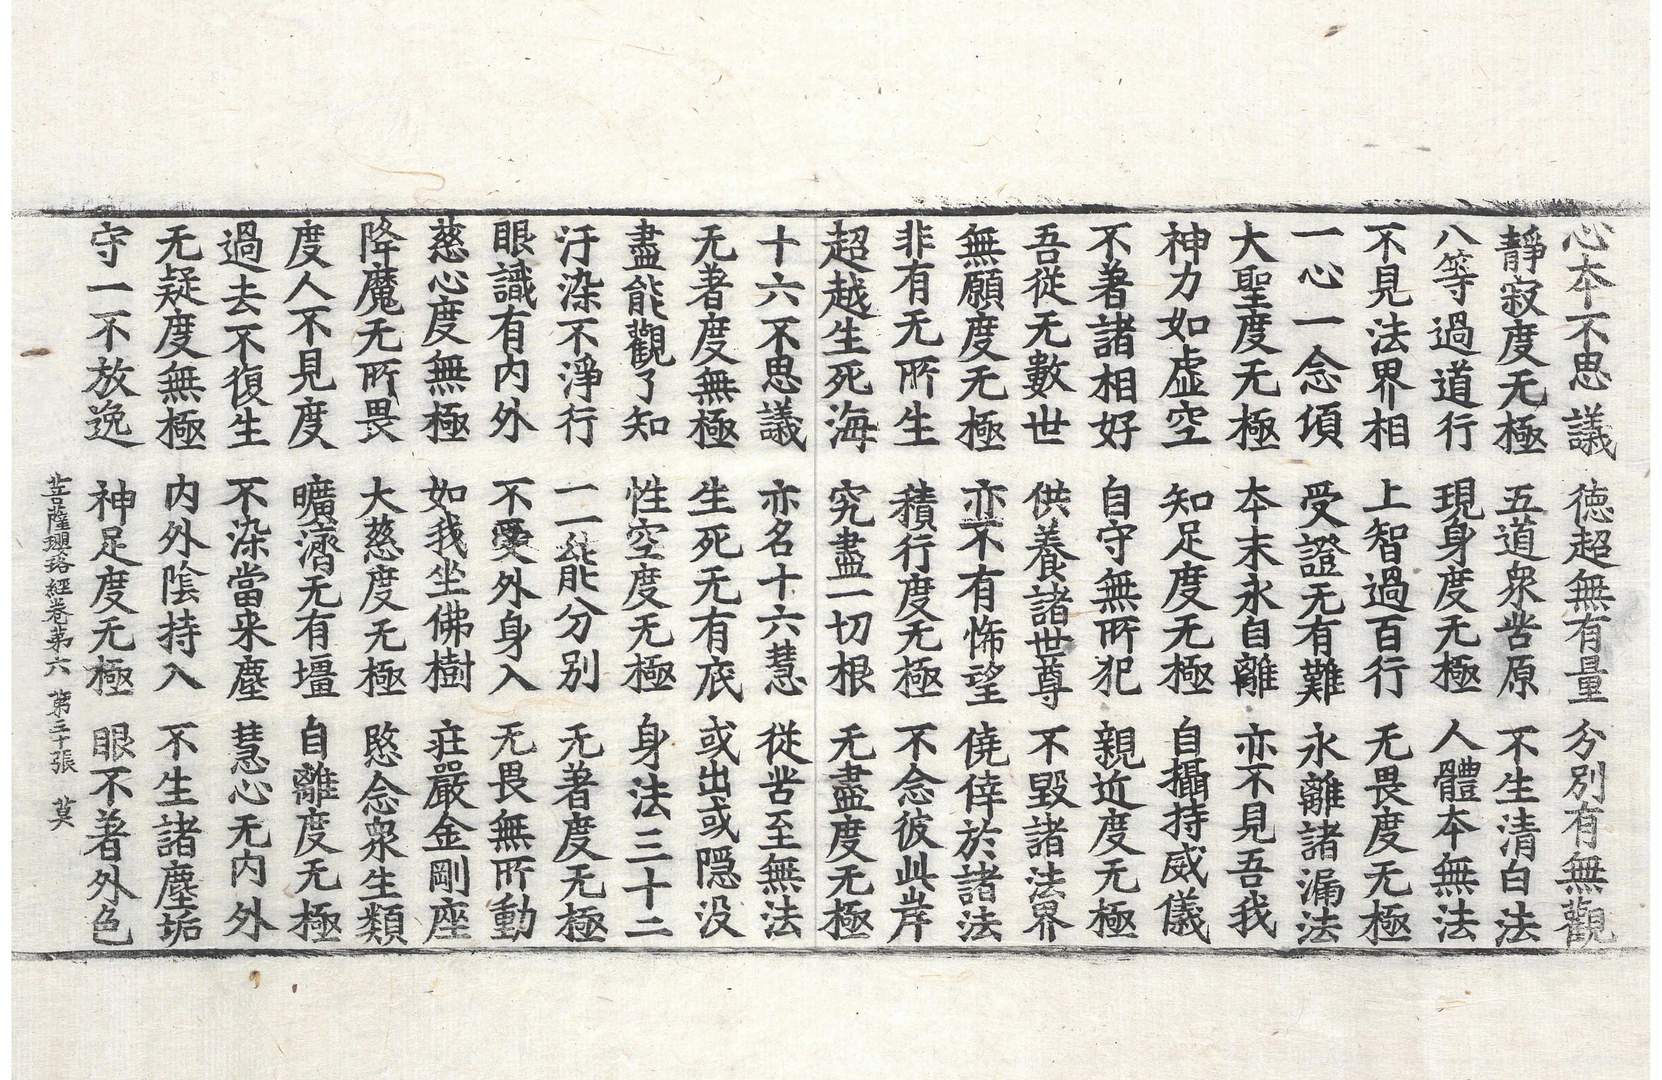 心本不思議 德超無有量 分別有無觀
靜寂度无極 五道衆苦原 不生清白法
八等過道行 現身度无極 人體本無法
不見法界相 上智過百行 无畏度无極
一心一念項 受證无有難 永離諸漏法
大聖度无極 本末永自離 亦不見吾我
神力如虛空 知足度无極 自攝持威儀
不著諸相好 自守無所犯 親近度无極
吾從无數世 供養諸世尊 不毀諸法界
無願度无極 亦不有悕望 僥倖於諸法
非有无所生 積行度无極 不念彼此岸
超越生死海 究盡一切根 无盡度无極
十六不思議 亦名十六慧 從苦至無法
无著度無極 生死无有底 或出或隱没
盡能觀了知 性空度无極 身法三十二
汙染不淨行 一一能分别 无著度无極
眼識有內外 不受外身入 无畏無所動
慈心度無極 如我坐佛樹 莊嚴金剛座
降魔无所畏 大慈度无極 愍念衆生類
度人不見度 曠濟无有壃 自離度无極
過去不復生 不染當来塵 慧心无內外
无疑度無極 内外陰持入 不生諸塵垢
守一不放逸 神足度无極 眼不著外色
菩薩瓔珞經卷第六 第三十張 莫